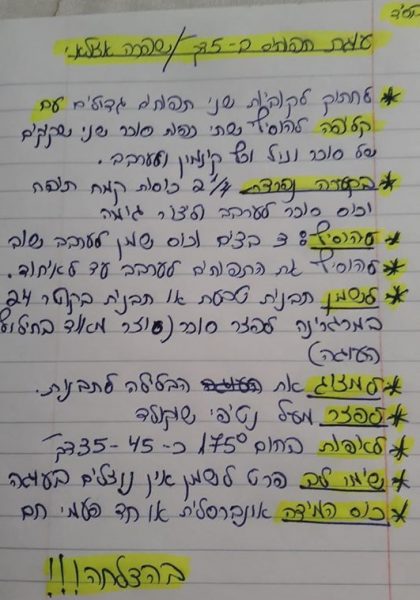 בס"ד
עוגת תפוחים ב-5 דק'/שפרה אצולאי
* לחתוך לקוביות שני תפוחים גדולים עם
קליפה להוסיף שתי כפות סוכר שני שקיקים
של סוכר וניל וכף קינמון ולערבב.
* בקערה נפרדת 2 1/4 כוסות קמח תופח
וכוס סוכר לערבב וליצור גומה
* להוסיף: 3 בצים וכוס שמן לערבב שוב
* להוסיף את התפוחים לערבב עד לאיחוד.
* לשמן תבנית טבעת או תבנית בקוטר 24
במרגרינה לפזר סוכר (עוזר מאוד בחילוץ
העוגה)
* למזוג את הבלילה לתבנית.
* לפזר מעל נטיפי שוקולד
* לאפות בחום 175° כ-35-45 דק'
* שימי לב פרט לשמן אין נוזלים בעוגה
* כוס המידה אונברסלית או חד פעמי חם
בהצלחה!!!